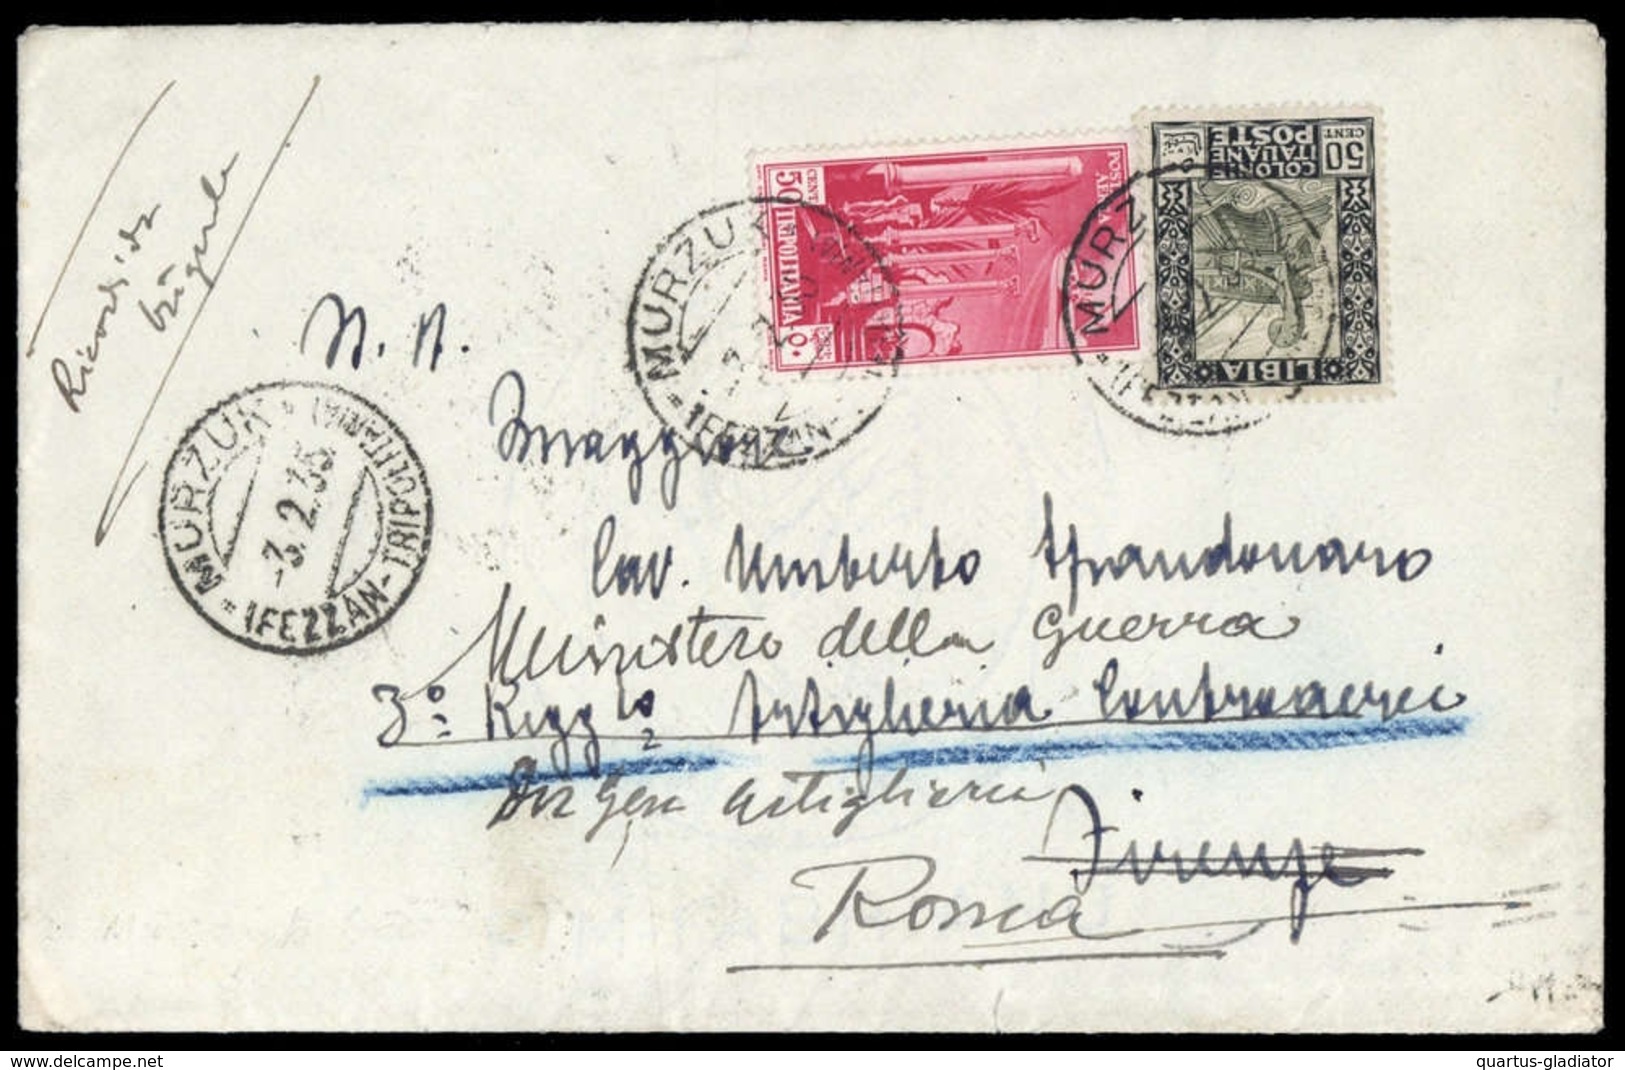 Ricordi da
N. H.
Maggiore
Cav. Umberto Spandonaro
Ministero della Guerra
3° Regg.to Artiglieria Contraerei
Artiglieria
Firenze
Roma
MURZUK
(FEZZAN-TRIPOLITANIA)
3.2.35
MURZUK
(FEZZAN
POSTA AEREA
50 CENT
TRIPOLITANIA
MURZUK
(FEZZAN
COLONIE ITALIANE
POSTE
50 CENT
LIBIA
www.delcampe.net
quartus-gladiator